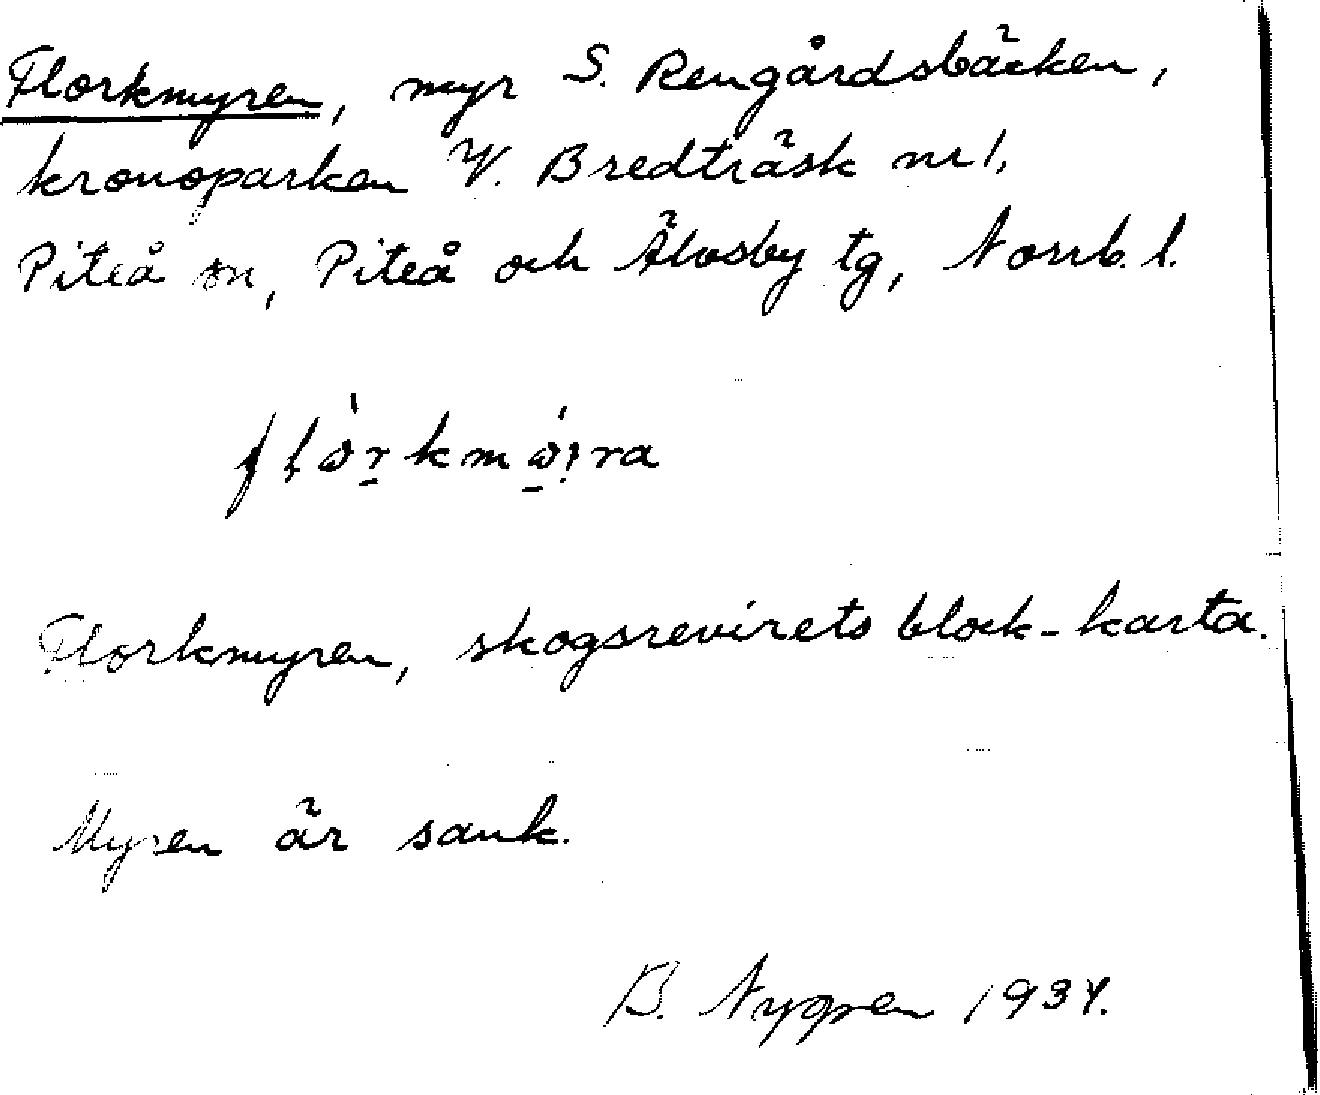 Florkmyren, myr S. Rengårdsbäcken,
kronoparken V. Bredträsk nr 1,
Piteå sn, Piteå och Älvsby tg, Norrb. l.
Florkmyren, skogsrevirets block-karta.
Myren är sank.
B. Nygren 1934.